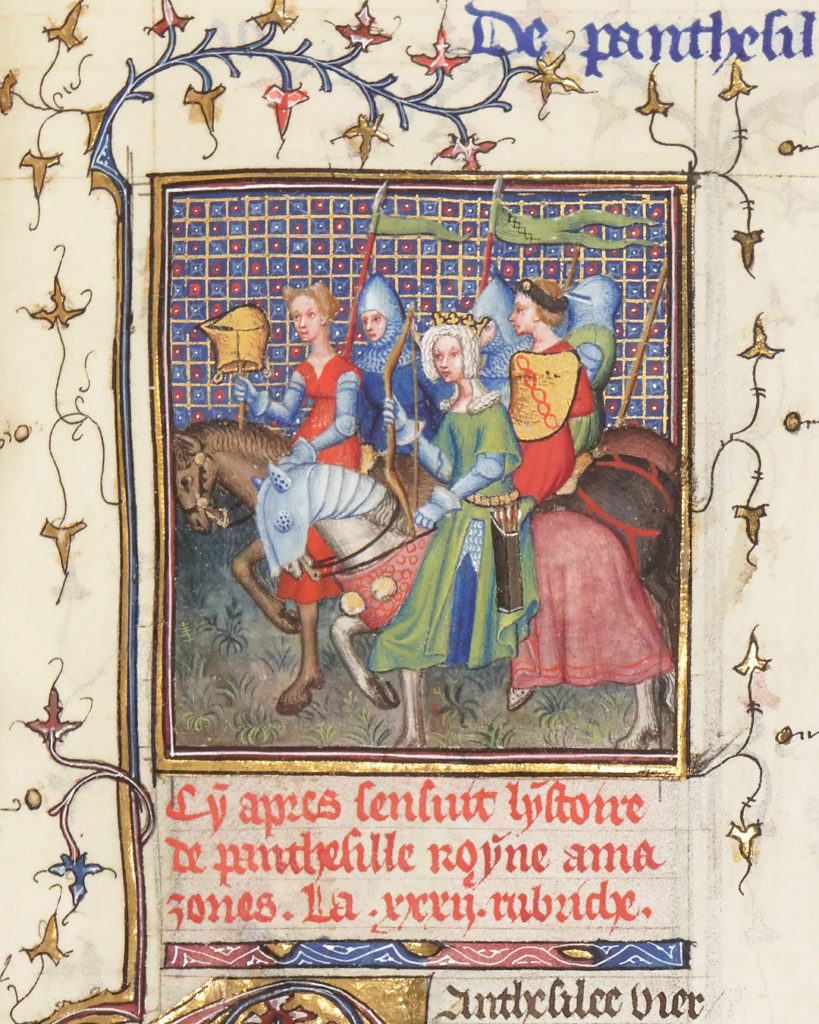 De panthesil
Cy apres sensuit lystoire
de panthesille royne ama
zones. La .xxxii. rubriche.
Anthesilee vier